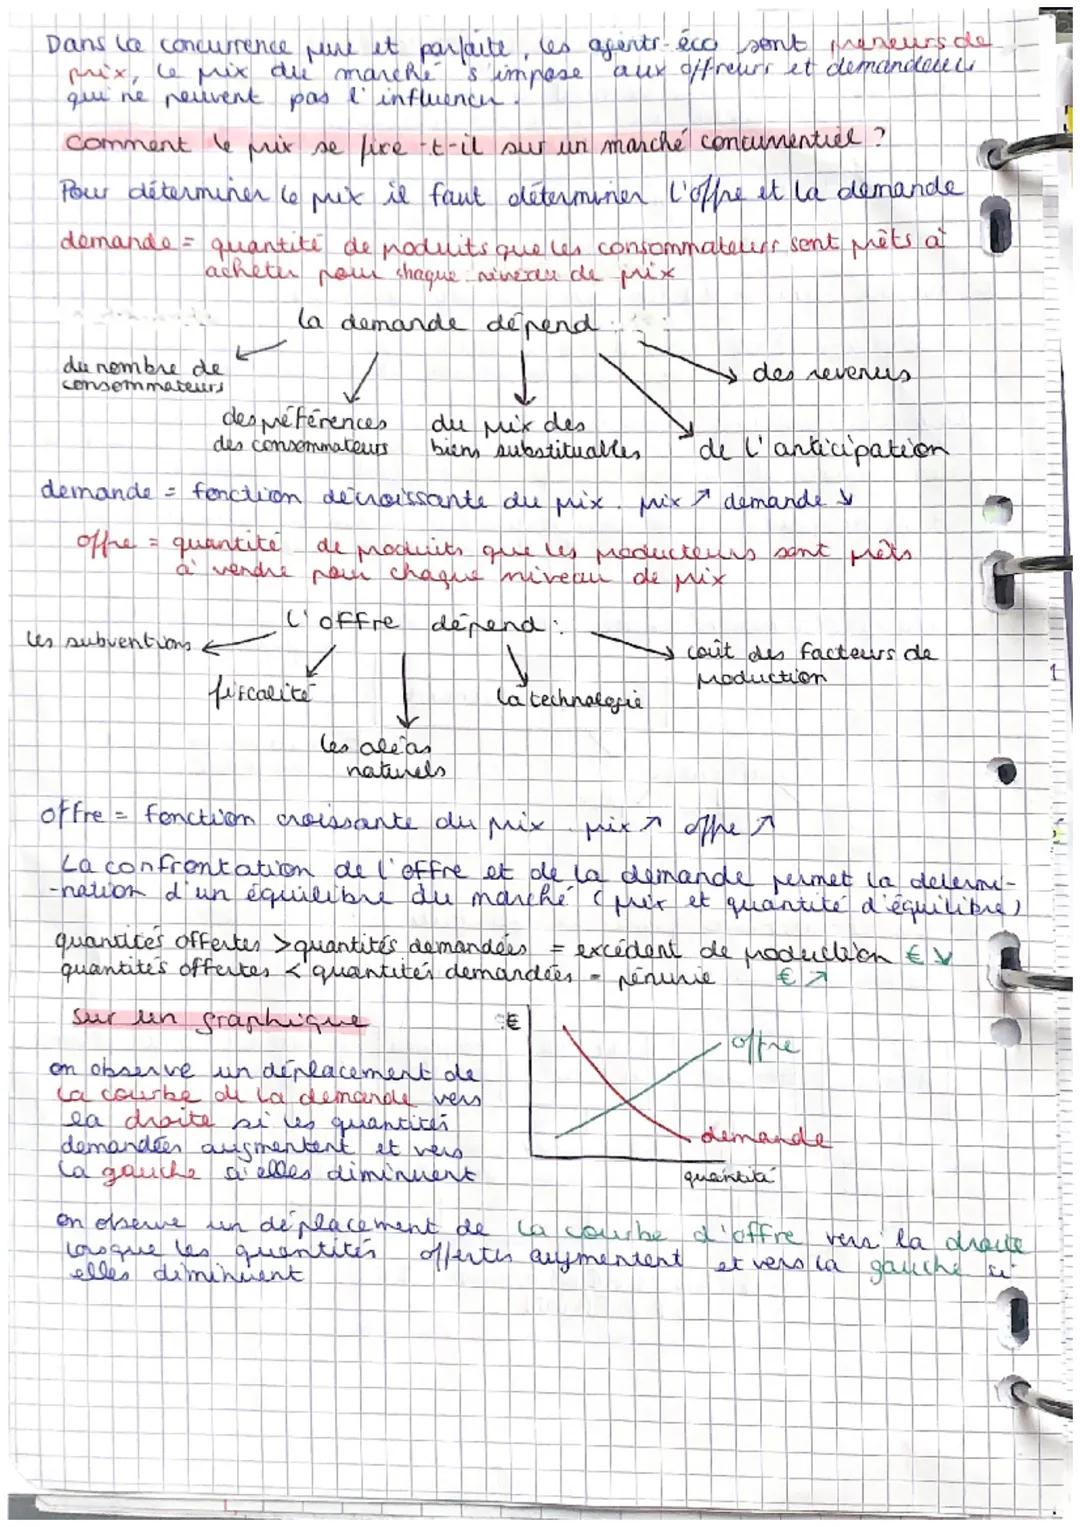 Dans la concurrence pure et parfaite, les agents-éco sont preneurs de
prix, le prix du marché s'impose aux offreurs et demandeurs
qui ne peuvent pas l'influencer.
Comment le prix se fixe-t-il sur un marché concurrentiel ?
Pour déterminer le prix il faut déterminer l'offre et la demande
demande = quantité de produits que les consommateurs sont prêts à
acheter pour chaque niveau de prix
la demande dépend :
du nombre de
consommateurs
des revenus
des préférences
des consommateurs
du prix des
biens substituables
de l'anticipation
demande = fonction décroissante du prix. prix ↗ demande ↘
offre = quantité de produits que les producteurs sont prêts
à vendre pour chaque niveau de prix
L'offre dépend :
les subventions
coût des facteurs de
production
fiscalité
la technologie
les aléas
naturels
offre = fonction croissante du prix prix ↗ offre ↗
La confrontation de l'offre et de la demande permet la détermi-
-nation d'un équilibre du marché (prix et quantité d'équilibre)
quantités offertes > quantités demandées = excédent de production € ↘
quantités offertes < quantités demandées = pénurie € ↗
Sur un graphique
€
offre
demande
quantité
on observe un déplacement de
la courbe de la demande vers
la droite si les quantités
demandées augmentent et vers
la gauche si elles diminuent
on observe un déplacement de la courbe d'offre vers la droite
lorsque les quantités offertes augmentent et vers la gauche si
elles diminuent